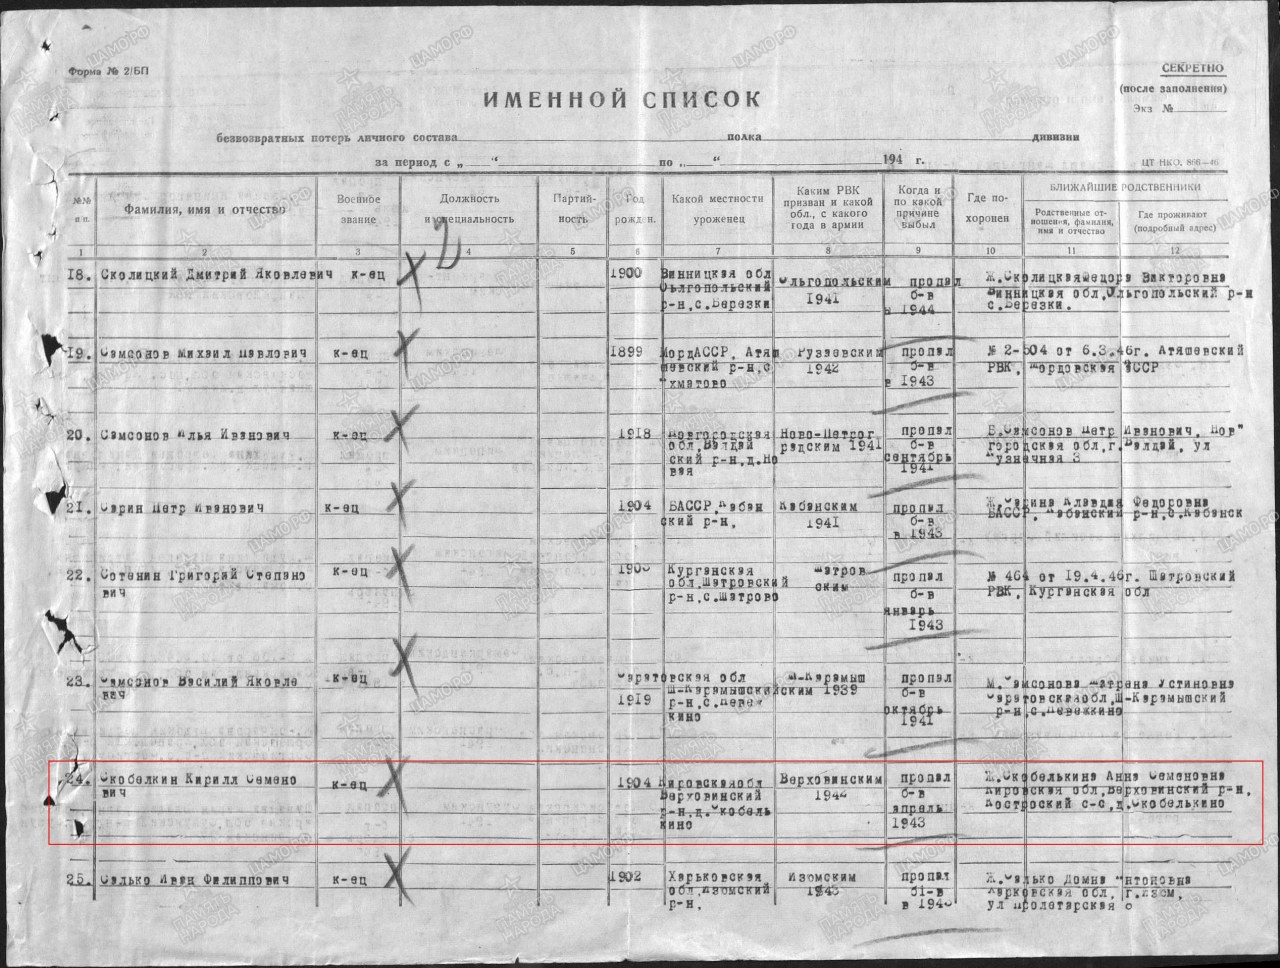 Форма № 2/БП
СЕКРЕТНО
(после заполнения)
Экз №
ИМЕННОЙ СПИСОК
безвозвратных потерь личного состава полка дивизии
за период с „ “ по „ “ 194 г.
ЦТ НКО. 866—46
№№ п п.
Фамилия, имя и отчество
Военное звание
Должность и специальность
Партийность
Год рожден.
Какой местности уроженец
Каким РВК призван и какой обл., с какого года в армии
Когда и по какой причине выбыл
Где похоронен
БЛИЖАЙШИЕ РОДСТВЕННИКИ
Родственные отношения, фамилия, имя и отчество
Где проживают (подробный адрес)
1 2 3 4 5 6 7 8 9 10 11 12
2
18. Сколицкий Дмитрий Яковлевич к-ец 1900 Винницкая обл Ольгопольским пропал Ж.Сколицкая Федора Викторовна
Ольгопольский 1941 б-в Винницкая обл.Ольгопольский р-н
р-н.с.Березки в 1944 с.Березки.
19. Самсонов Михаил Павлович к-ец 1899 МордАССР. Атяш Рузаевским пропал № 2-504 от 6.3.46г. Атяшевский
шевский р-н.с 1942 б-в РВК, Мордовская АССР
Ахматово в 1943
20. Самсонов Илья Иванович к-ец 1918 Новгородская Ново-Петрог пропал Б.Самсонов Петр Иванович, Нов"
обл.Валдай радским 1941 б-в городская обл.г.Валдай, ул
ский р-н.д.Но сентябрь Кузнечная 3
вая 1941
21. Сарин Петр Иванович к-ец 1904 БАССР.Кабан Кабанским пропал Ж.Сарина Клавдия Федоровна
ский р-н. 1941 б-в БАССР, Кабанский р-н.с.Кабанск
в 1943
22. Сотенин Григорий Степано к-ец Курганская Шатров пропал № 464 от 19.4.46г. Шатровский
вич обл.Шатровский ским б-в РВК, Курганская обл
р-н.с.Шатрово январь
1943
23. Самсонов Василий Яковле к-ец Саратовская обл Ш-Карамыш пропал М.Самсонова Матрена Устиновна
вич 1919 Ш-Карамышский ским 1939 б-в Саратовская обл.Ш-Карамышский
р-н.с.Невеж октябрь р-н.с.Невежкино
кино 1941
24. Скобелкин Кирилл Семено к-ец 1904 Кировская обл Верховинским пропал Ж.Скобелькина Анна Семеновна
вич Верховинский 1942 б-в Кировская обл.Верховинский р-н.
р-н.д.Скобель апрель Костроский с-с.д.Скобелькино
кино 1943
25. Салько Иван Филиппович к-ец 1902 Харьковская Изюмским пропал Ж.Салько Домна Антоновна
обл.Изюмский 1943 б1-в Харковская обл, г.Изюм,
р-н. в 194 ул Пролетарская
ЦАМО.РФ
ПАМЯТЬ НАРОДА